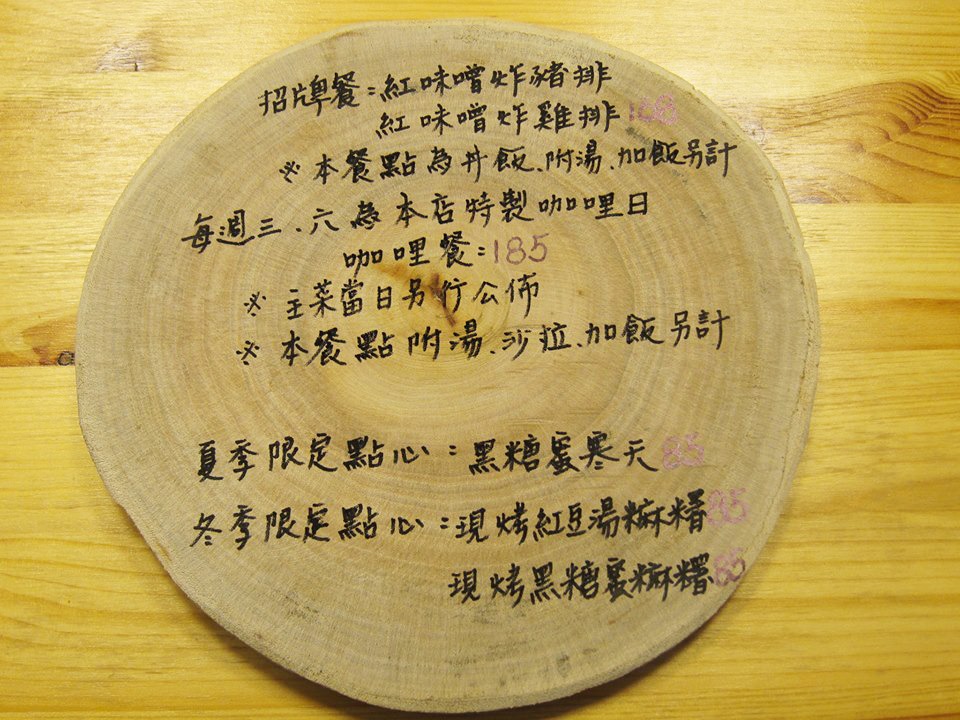 招牌餐:紅味噌炸豬排
紅味噌炸雞排 168
※本餐點為丼飯、附湯、加飯另計
每週三、六為本店特製咖哩日
咖哩餐:185
※主菜當日另行公佈
※本餐點附湯、沙拉、加飯另計
夏季限定點心:黑糖蜜寒天 85
冬季限定點心:現烤紅豆湯麻糬 85
現烤黑糖蜜麻糬 85